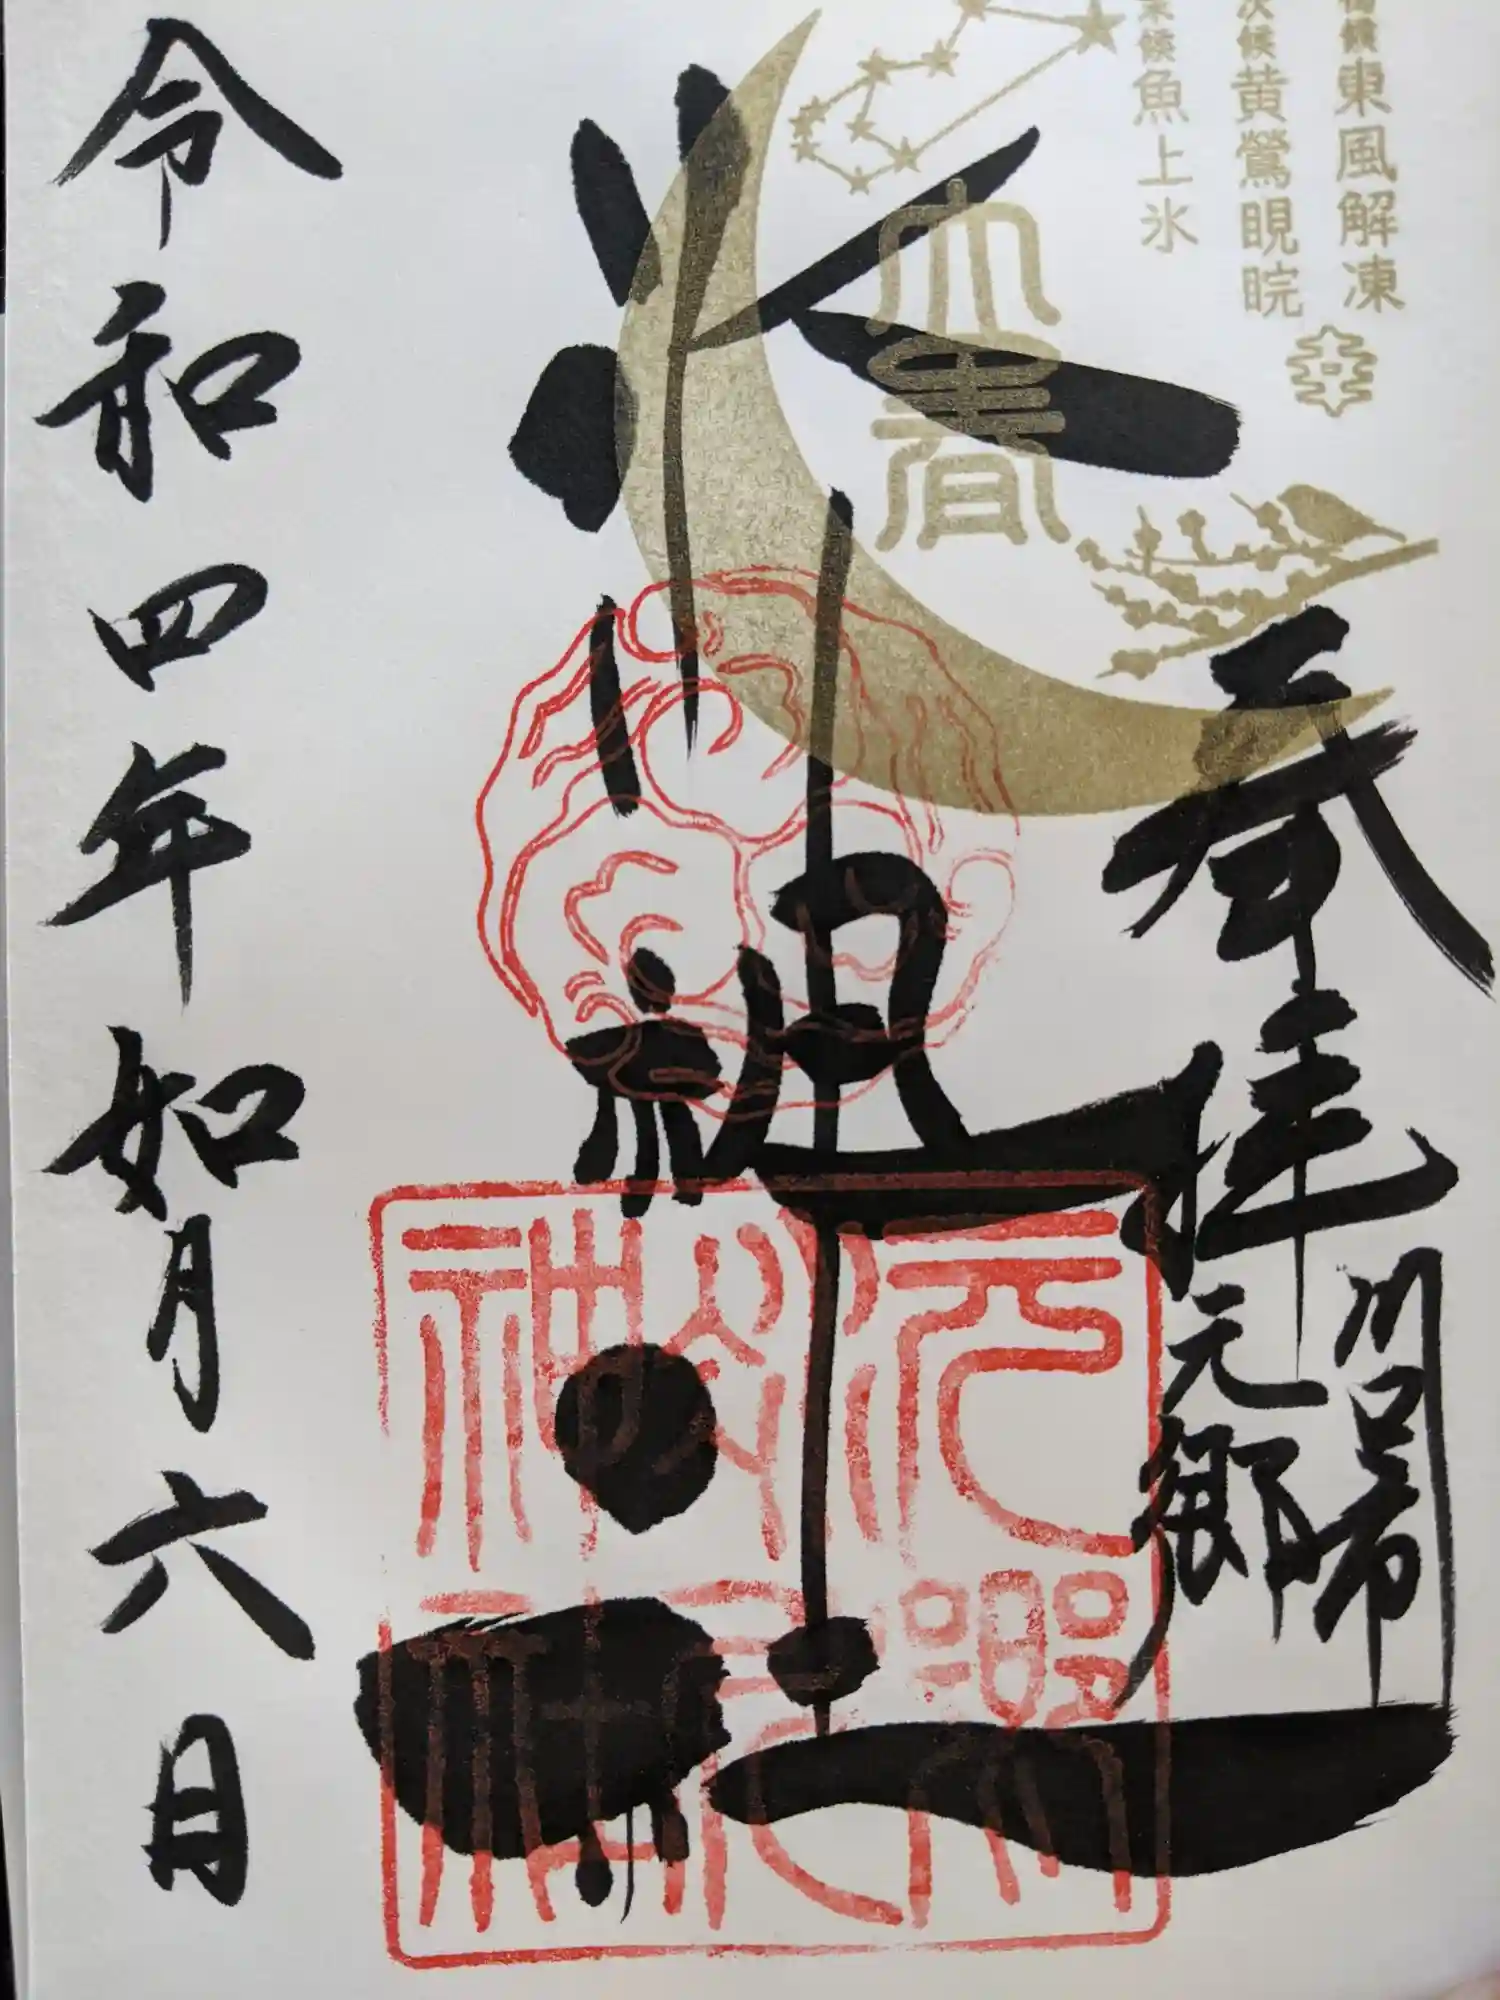 初候東風解凍
次候黄鶯睍睆
末候魚上氷
立春
奉拝
川口市
元郷
氷川神社
令和四年如月六日